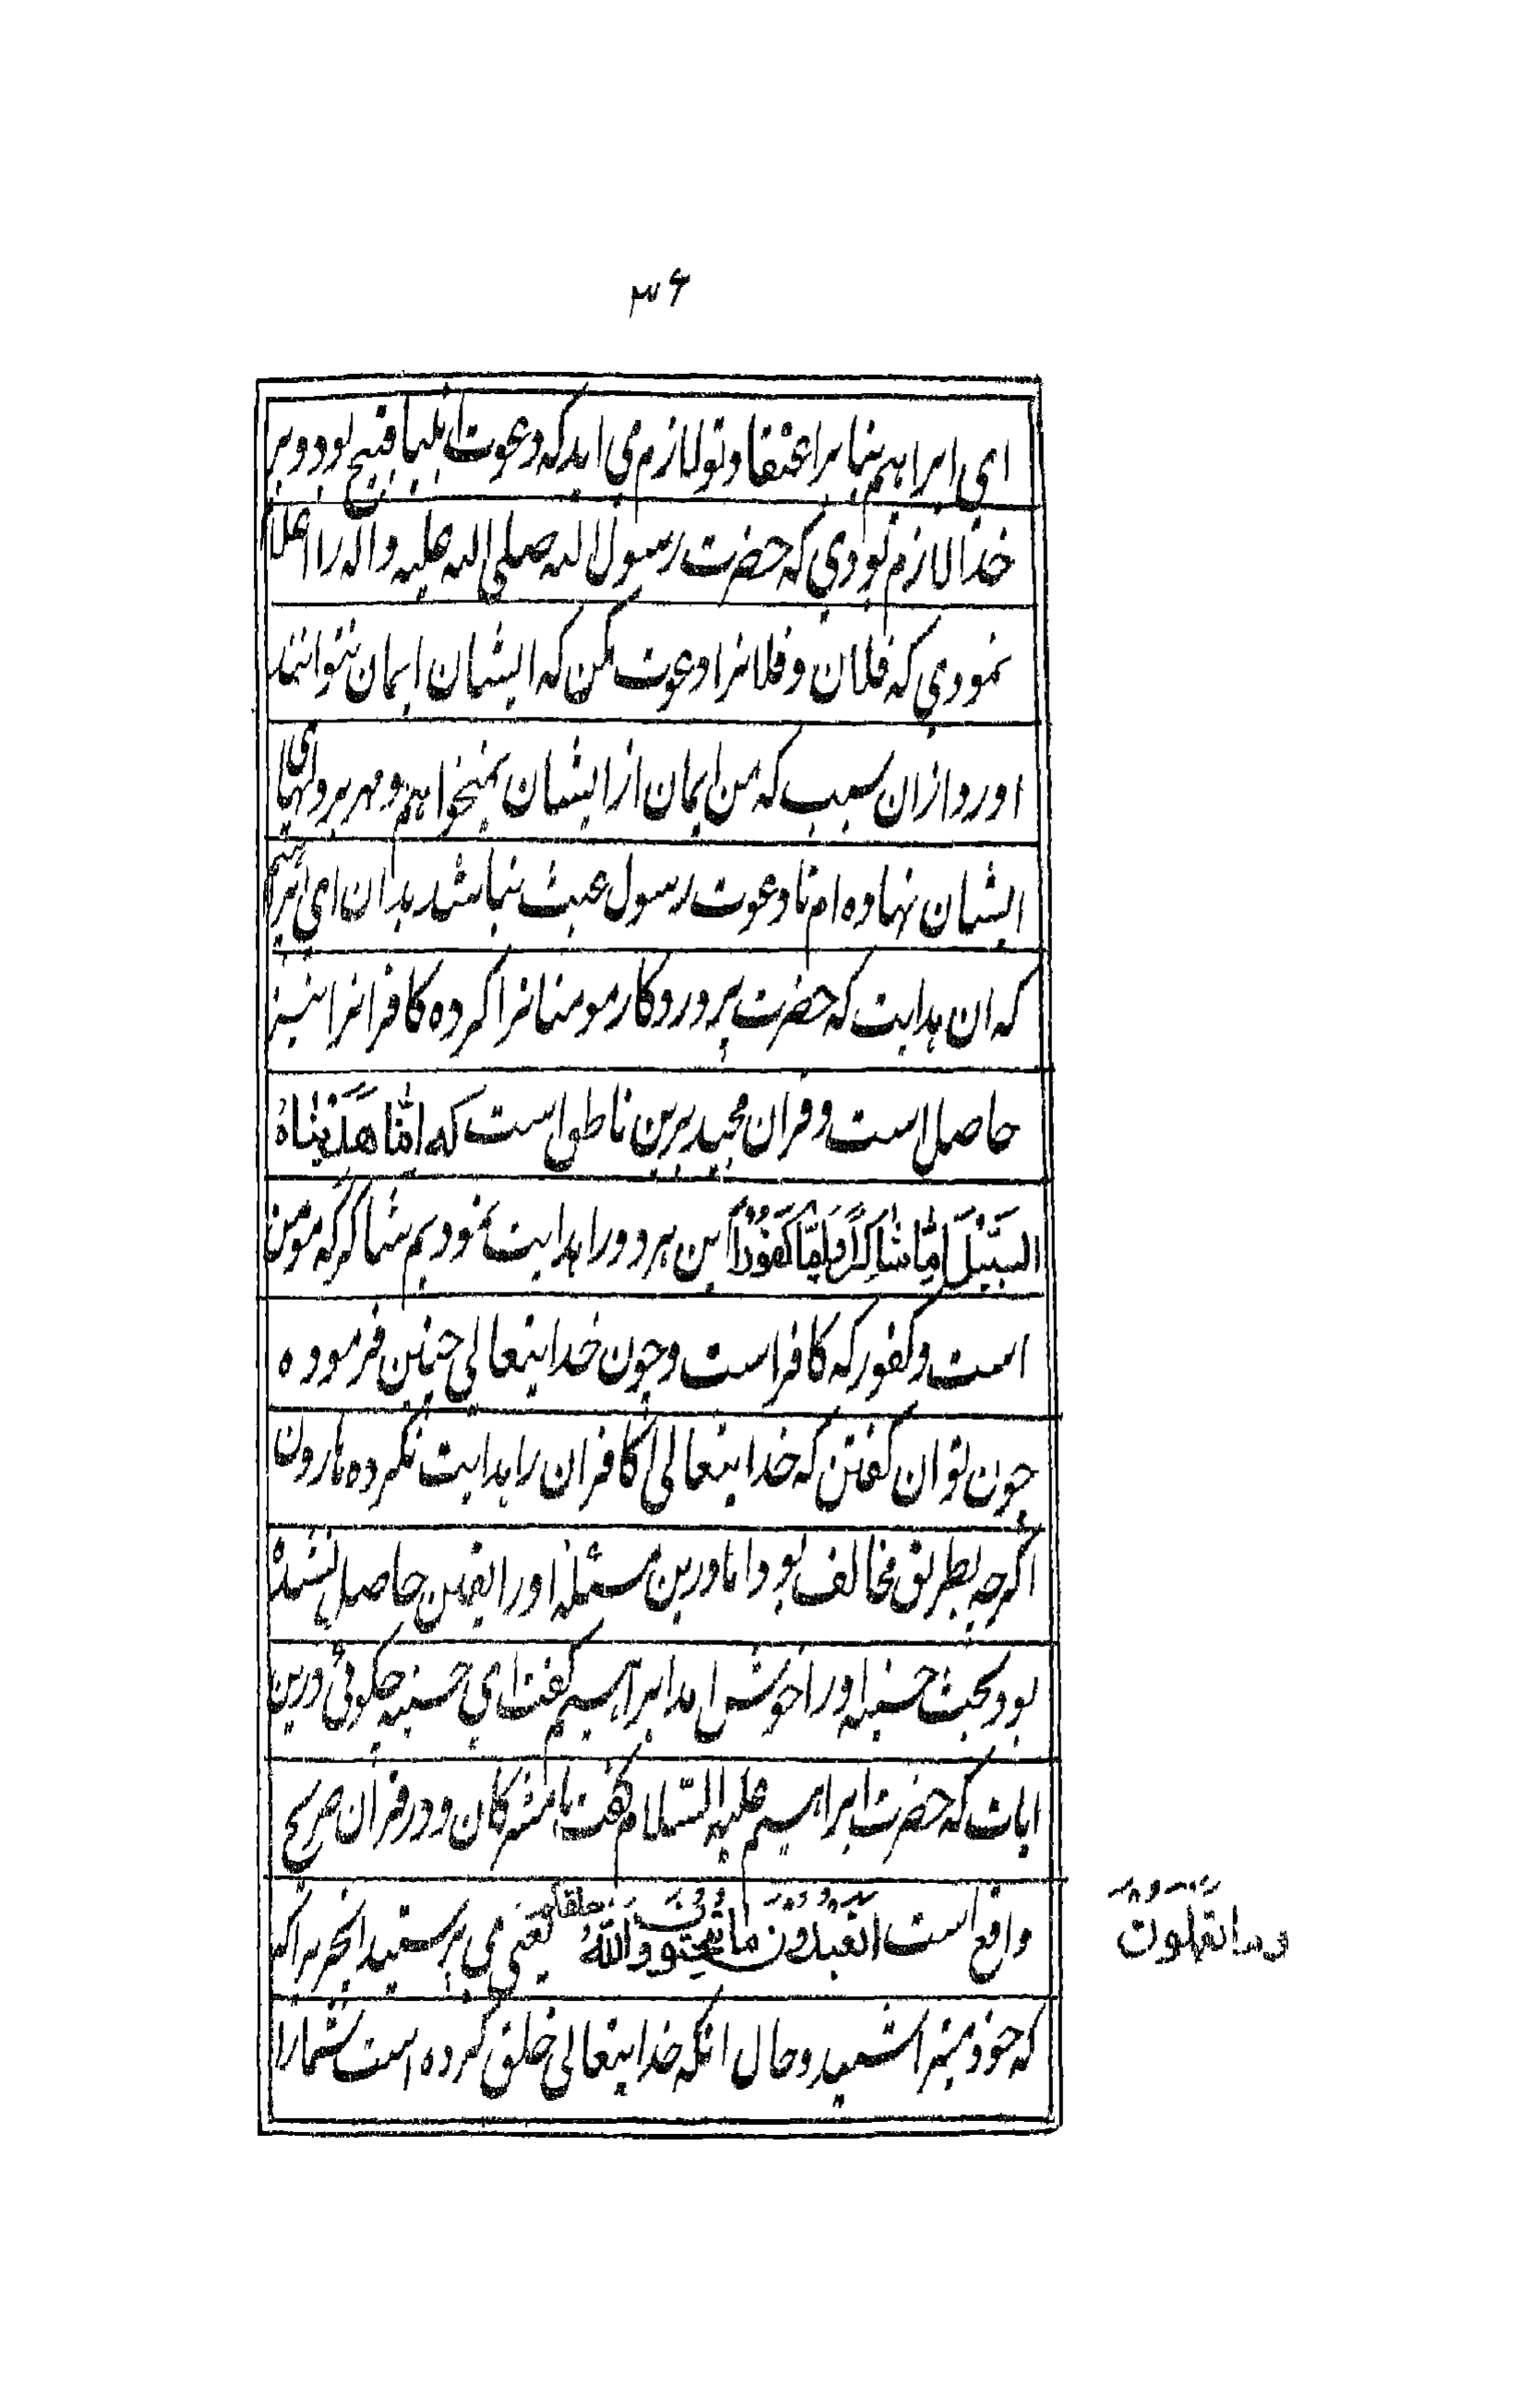 ۳۶
ای ابراهیم بنابر اعتقاد تو لازم می اید که دعوت انبیا قبیح بود و بر
خدا لازم بودی که حضرت رسول الله صلی الله علیه واله را اعلام
نمودی که فلان و فلانرا دعوت مکن که ایشان ایمان نتوانند
اورد از ان سبب که من ایمان از ایشان نمیخواهم و مهر بر دلهای
ایشان نهاده ام تا دعوت رسول عبث نباشد بدان ای ابراهیم
که ان هدایت که حضرت پروردکار مومنانرا کرده کافرانرا نیز
حاصل است و قران مجید برین ناطق است که اِنّا هَدَیْنٰاهُ
السَبیْلَ اِمّا شٰاکِراً وَاِمّا کَفُوْراً این هر دو را هدایت نمودیم شاکر که مومن
است و کفور که کافر است و چون خدایتعالی چنین فرموده
چون توان کفتن که خدایتعالی کافران را هدایت نکرده هارون
اکرچه بطریق مخالف بود اما درین مسئله او را یقین حاصل نشده
بود بحث حسنیه او را خوش امد ابراهیم کفت ای حسنیه چکوئی درین
ایات که حضرت ابراهیم علیه السّلام کفت با مشرکان و در قران صریح
واقع است اَتَعْبُدُوْنَ ما تَنْحِتُوْنَ وَاللّٰهُ خلقکم یعنی می پرستید انچیز را که
وما تعملون
که خود میتراشید و حال انکه خدایتعالی خلق کرده است شما را